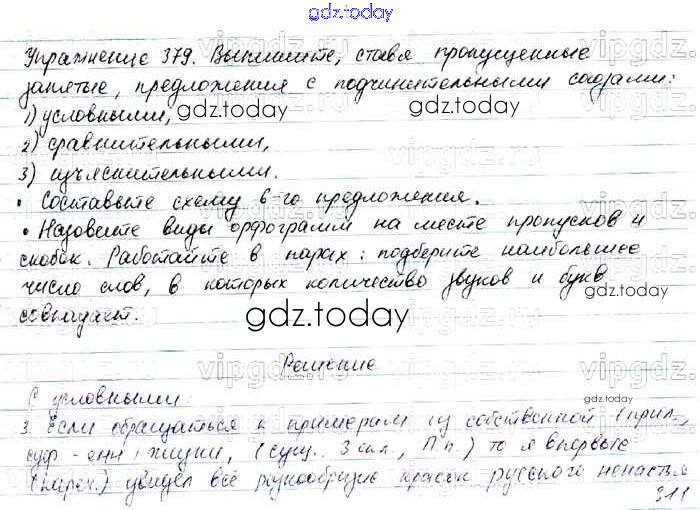 gdz.today
Упражнение 379. Выпишите, ставя пропущенные
запятые, предложения с подчинительными союзами:
1) условными,
gdz.today
gdz.today
2) сравнительными,
3) изъяснительными.
• Составьте схему 6-го предложения.
• Назовите виды орфограмм на месте пропусков и
скобок. Работайте в парах: подберите наибольшее
число слов, в которых количество звуков и букв
совпадает.
gdz.today
Решение
gdz.today
С условными:
3. Если обращаться к примерам из собственной (прил.,
суф -енн) жизни, (сущ., 3 скл., П.п.) то я впервые
(нареч.) увидел всё разнообразие красок русского ненастья
311